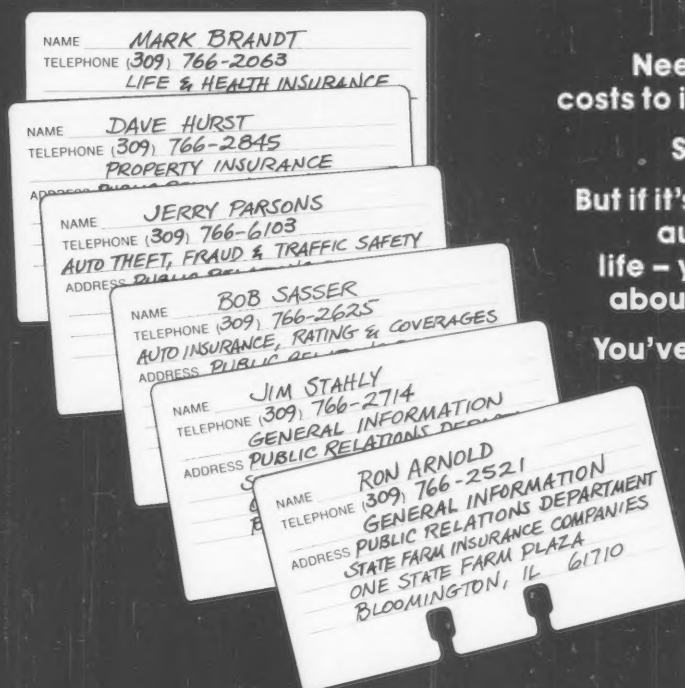 NAME MARK BRANDT
TELEPHONE (309) 766-2063
LIFE & HEALTH INSURANCE
NAME DAVE HURST
TELEPHONE (309) 766-2845
PROPERTY INSURANCE
ADDRESS PUBLIC
NAME JERRY PARSONS
TELEPHONE (309) 766-6103
AUTO THEFT, FRAUD & TRAFFIC SAFETY
ADDRESS PUBLIC RELATIONS
NAME BOB SASSER
TELEPHONE (309) 766-2625
AUTO INSURANCE, RATING & COVERAGES
ADDRESS PUBLIC RELATIONS
NAME JIM STAHLY
TELEPHONE (309) 766-2714
GENERAL INFORMATION
ADDRESS PUBLIC RELATIONS
NAME RON ARNOLD
TELEPHONE (309) 766-2521
GENERAL INFORMATION
ADDRESS PUBLIC RELATIONS DEPARTMENT
STATE FARM INSURANCE COMPANIES
ONE STATE FARM PLAZA
BLOOMINGTON, IL 61710
Nee
costs to i
S
But if it's
au
life – y
abou
You've